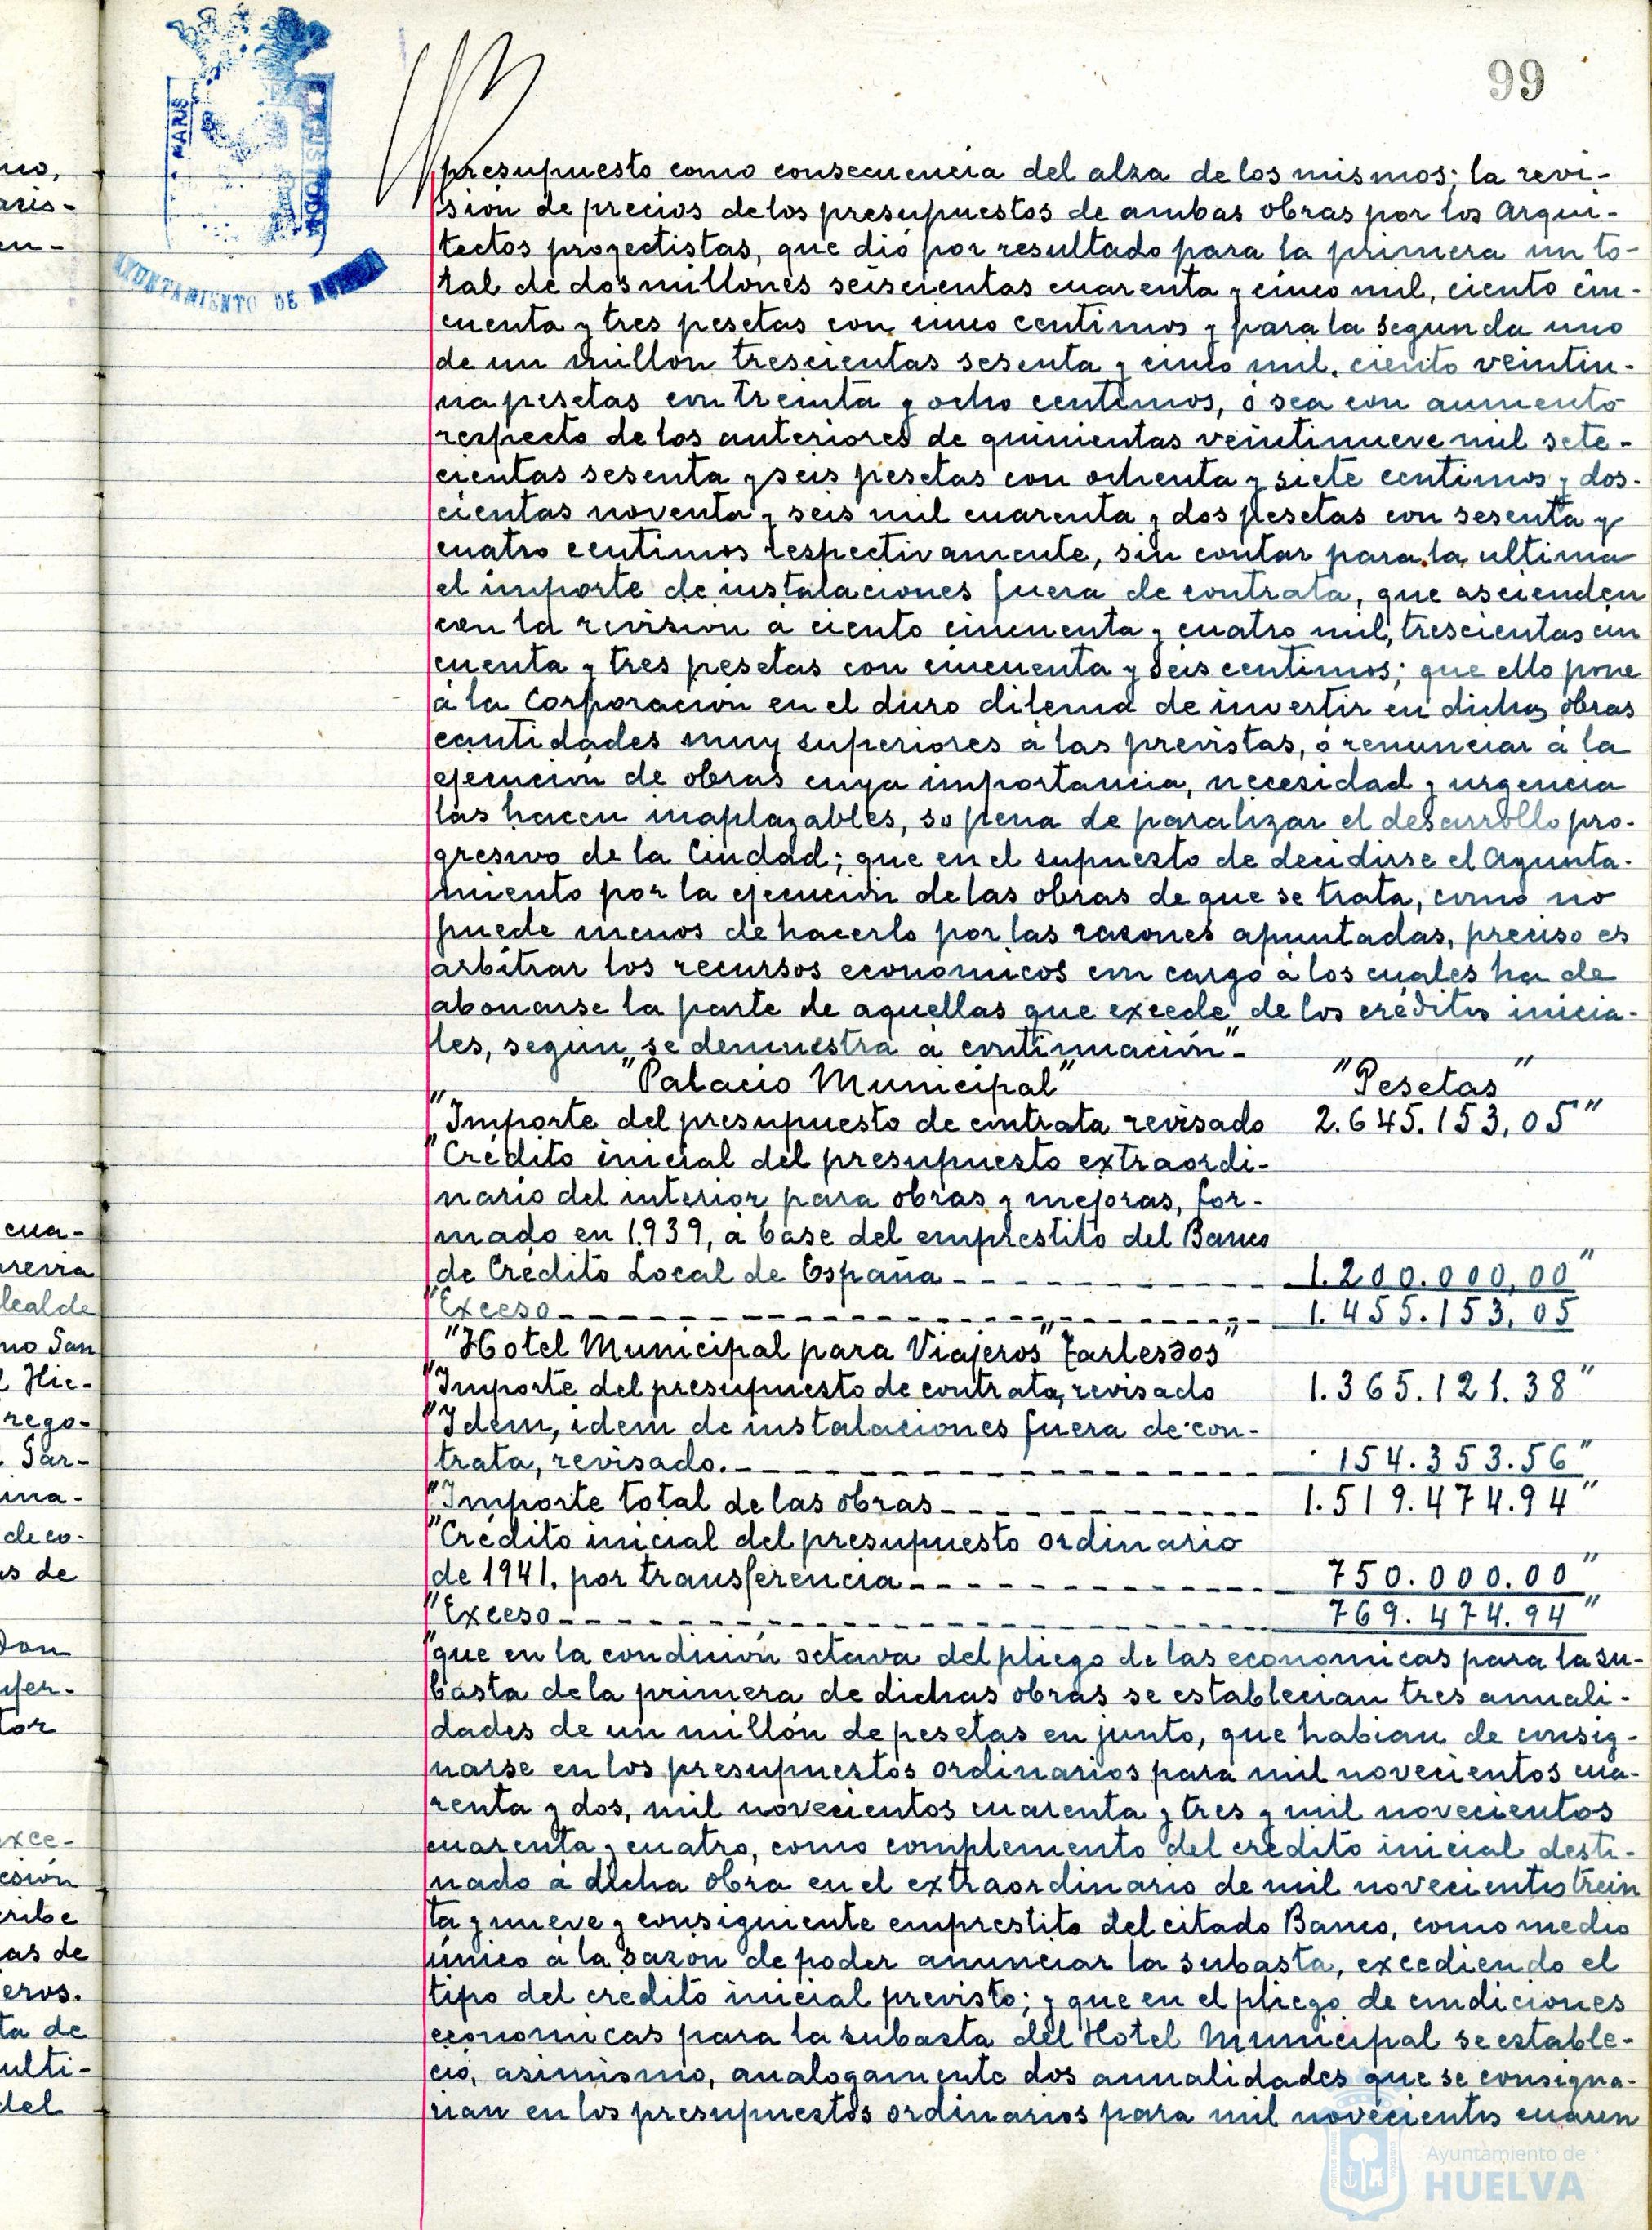 99
MARIS
AYUNTAMIENTO DE HUELVA
presupuesto como consecuencia del alza de los mismos; la revi-
sión de precios de los presupuestos de ambas obras por los Arqui-
tectos proyectistas, que dió por resultado para la primera un to-
tal de dos millones seiscientas cuarenta y cinco mil, ciento cin-
cuenta y tres pesetas con cinco centimos y para la segunda uno
de un millon trescientas sesenta y cinco mil, ciento veintiu-
na pesetas con treinta y ocho centimos, ó sea con aumento
respecto de los anteriores de quinientas veintinueve mil sete-
cientas sesenta y seis pesetas con ochenta y siete centimos y dos-
cientas noventa y seis mil cuarenta y dos pesetas con sesenta y
cuatro centimos respectivamente, sin contar para la ultima
el importe de instalaciones fuera de contrata, que ascienden
con la revision a ciento cincuenta y cuatro mil, trescientas cin
cuenta y tres pesetas con cincuenta y seis centimos; que ello pone
á la Corporación en el duro dilema de invertir en dichas obras
cantidades muy superiores á las previstas, ó renunciar á la
ejecución de obras cuya importancia, necesidad y urgencia
las hacen inaplazables, so pena de paralizar el desarrollo pro-
gresivo de la Ciudad; que en el supuesto de decidirse el Ayunta-
miento por la ejecución de las obras de que se trata, como no
puede menos de hacerlo por las razones apuntadas, preciso es
arbitrar los recursos economicos con cargo á los cuales ha de
abonarse la parte de aquellas que excede de los créditos inicia-
les, según se demuestra á continuación".
"Palacio Municipal" "Pesetas"
"Importe del presupuesto de contrata revisado 2.645.153,05"
"Crédito inicial del presupuesto extraordi-
nario del interior para obras y mejoras, for-
mado en 1.939, á base del emprestito del Banco
de Crédito Local de España - - - - - - 1.200.000,00"
"Exceso - - - - - - - - - - 1.455.153,05
"Hotel Municipal para Viajeros "Tartessos"
"Importe del presupuesto de contrata, revisado 1.365.121.38"
"Idem, idem de instalaciones fuera de con-
trata, revisado. - - - - - - - - 154.353.56"
"Importe total de las obras - - - - - - 1.519.474.94"
"Crédito inicial del presupuesto ordinario
de 1941, por transferencia - - - - - - 750.000.00"
"Exceso - - - - - - - - - - 769.474.94"
"que en la condición octava del pliego de las economicas para la su-
basta de la primera de dichas obras se establecian tres anuali-
dades de un millón de pesetas en junto, que habian de consig-
narse en los presupuestos ordinarios para mil novecientos cua-
renta y dos, mil novecientos cuarenta y tres y mil novecientos
cuarenta y cuatro, como complemento del crédito inicial desti-
nado á dicha obra en el extraordinario de mil novecientos trein
ta y nueve y consiguiente emprestito del citado Banco, como medio
único á la sazón de poder anunciar la subasta, excediendo el
tipo del credito inicial previsto; y que en el pliego de condiciones
economicas para la subasta del Hotel Municipal se estable-
ció, asimismo, analogamente dos anualidades que se consigna-
rian en los presupuestos ordinarios para mil novecientos cuaren
cua-
lcalde
no San
l Hie-
rego-
ina-
de co-
s de
Don
tor
xce-
esión
ribe
as de
eros.
ta de
ulti-
del
Ayuntamiento de
HUELVA